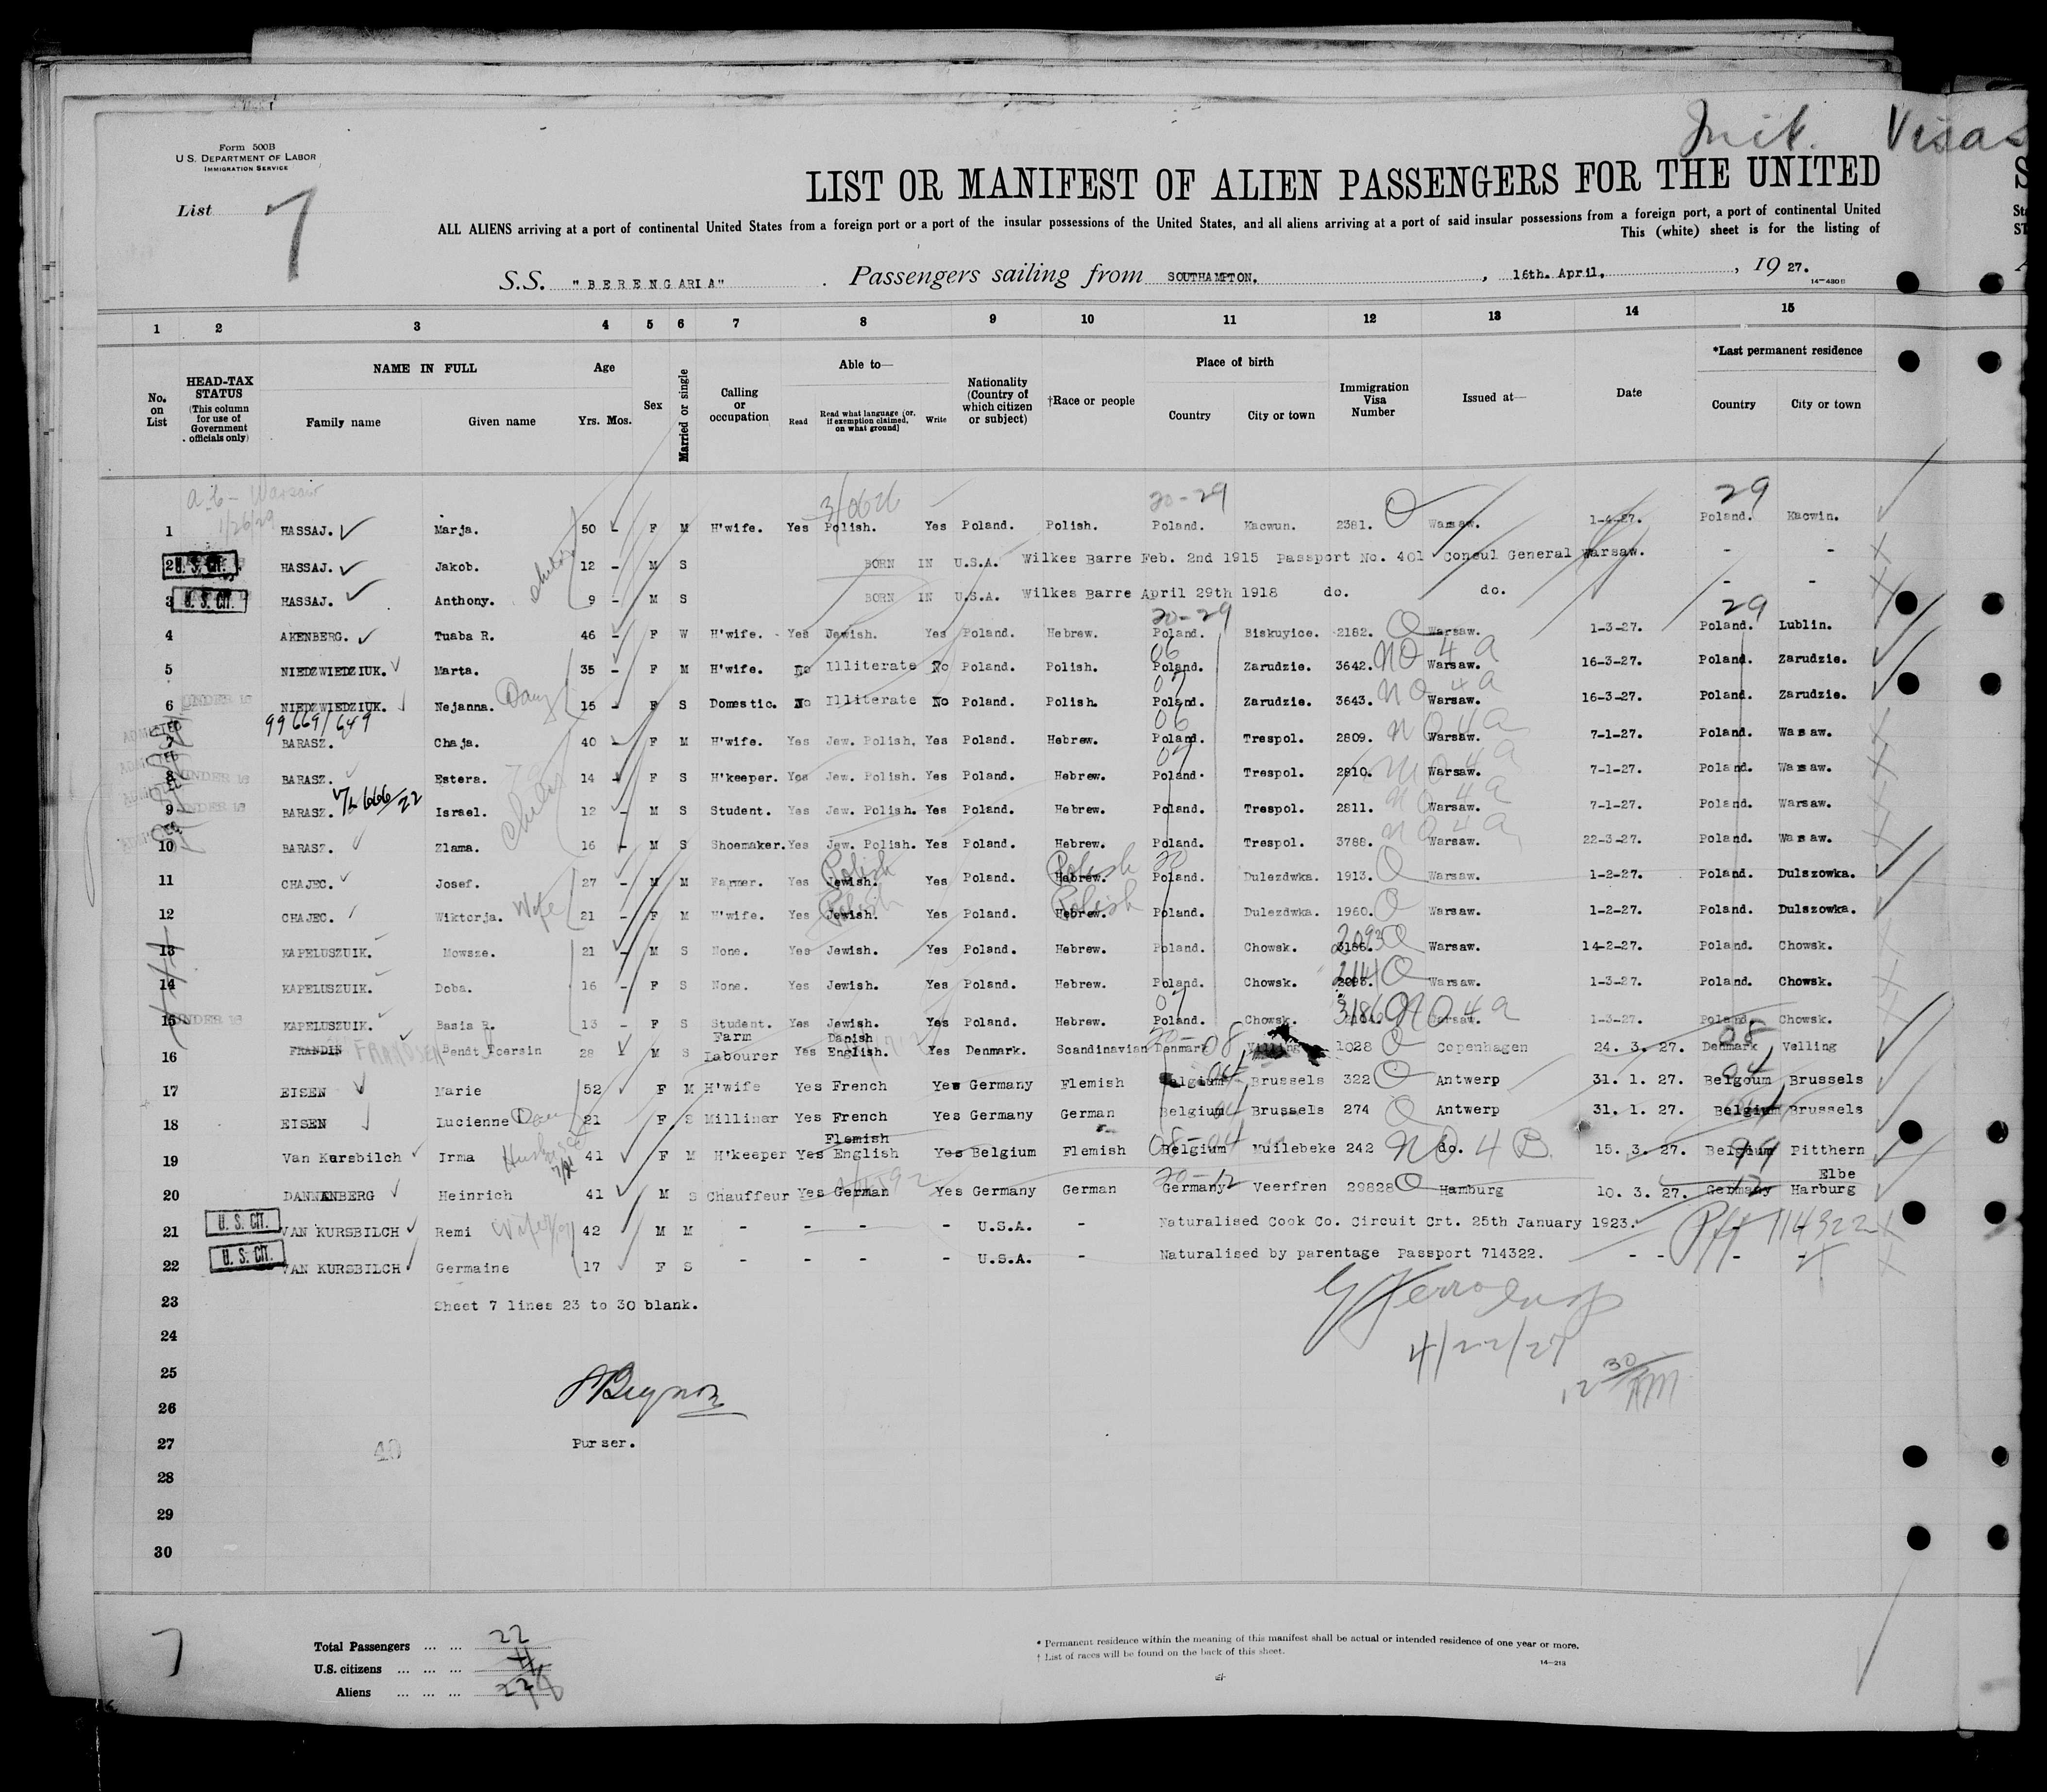 Init. Visas
Form 500B
U.S. DEPARTMENT OF LABOR
IMMIGRATION SERVICE
List 7
LIST OR MANIFEST OF ALIEN PASSENGERS FOR THE UNITED
ALL ALIENS arriving at a port of continental United States from a foreign port or a port of the insular possessions of the United States, and all aliens arriving at a port of said insular possessions from a foreign port, a port of continental United
This (white) sheet is for the listing of
S.S. "BERENGARIA" . Passengers sailing from SOUTHAMPTON. , 16th. April, , 19 27.
14—430B
1 2 3 4 5 6 7 8 9 10 11 12 13 14 15
No. on List
HEAD-TAX STATUS (This column for use of Government officials only)
NAME IN FULL
Family name Given name
Age
Yrs. Mos.
Sex
Married or single
Calling or occupation
Able to—
Read Read what language (or, if exemption claimed, on what ground) Write
Nationality (Country of which citizen or subject)
†Race or people
Place of birth
Country City or town
Immigration Visa Number
Issued at—
Date
*Last permanent residence
Country City or town
Warsaw
1/26/29
20-29 29
1 HASSAJ. Marja. 50 - F M H'wife. Yes Polish. Yes Poland. Polish. Poland. Kacwun. 2381. Warsaw. 1-4-27. Poland. Kacwin.
2 U.S. CIT. HASSAJ. Jakob. 12 - M S BORN IN U.S.A. Wilkes Barre Feb. 2nd 1915 Passport No. 401 Consul General Warsaw. - -
3 U.S. CIT. HASSAJ. Anthony. 9 - M S BORN IN U.S.A. Wilkes Barre April 29th 1918 do. do. - -
20-29 29
4 AKENBERG. Tuaba R. 46 - F W H'wife. Yes Jewish. Yes Poland. Hebrew. Poland. Biskuyice. 2182. Warsaw. 1-3-27. Poland. Lublin.
5 NIEDZWIEDZIUK. Marta. 35 - F M H'wife. No Illiterate No Poland. Polish. 06 Poland. Zarudzie. 3642. NO 4 a Warsaw. 16-3-27. Poland. Zarudzie.
6 UNDER 16 NIEDZWIEDZIUK. Nejanna. Dau 15 - F S Domestic. No Illiterate No Poland. Polish. 07 Poland. Zarudzie. 3643. NO 4 a Warsaw. 16-3-27. Poland. Zarudzie.
99669/649
7 ADMITTED BARASZ. Chaja. 40 - F M H'wife. Yes Jew. Polish. Yes Poland. Hebrew. 06 Poland. Trespol. 2809. NO 4 a Warsaw. 7-1-27. Poland. Warsaw.
8 UNDER 16 BARASZ. Estera. 14 - F S H'keeper. Yes Jew. Polish. Yes Poland. Hebrew. 07 Poland. Trespol. 2810. NO 4 a Warsaw. 7-1-27. Poland. Warsaw.
9 UNDER 16 BARASZ. Israel. 12 - M S Student. Yes Jew. Polish. Yes Poland. Hebrew. Poland. Trespol. 2811. NO 4 a Warsaw. 7-1-27. Poland. Warsaw.
10 BARASZ. Zlama. 16 - M S Shoemaker. Yes Jew. Polish. Yes Poland. Hebrew. Poland. Trespol. 3788. NO 4 a Warsaw. 22-3-27. Poland. Warsaw.
11 CHAJEC. Josef. 27 - M M Farmer. Yes Polish Jewish. Yes Poland. Polish Hebrew. Poland. Dulezdwka. 1913. Warsaw. 1-2-27. Poland. Dulszowka.
12 CHAJEC. Wiktorja. Wife 21 - F M H'wife. Yes Polish Jewish. Yes Poland. Polish Hebrew. Poland. Dulezdwka. 1960. Warsaw. 1-2-27. Poland. Dulszowka.
13 KAPELUSZUIK. Mowsze. 21 - M S None. Yes Jewish. Yes Poland. Hebrew. Poland. Chowsk. 2093 3186. Warsaw. 14-2-27. Poland. Chowsk.
14 KAPELUSZUIK. Doba. 16 - F S None. Yes Jewish. Yes Poland. Hebrew. Poland. Chowsk. 2093. Warsaw. 1-3-27. Poland. Chowsk.
15 UNDER 16 KAPELUSZUIK. Basia R. 13 - F S Student. Yes Jewish. Yes Poland. Hebrew. 07 Poland. Chowsk. 3186 NO 4 a Warsaw. 1-3-27. Poland. Chowsk.
16 FRANDIN FRANDSEN Bendt Foersin 28 M S Farm Labourer Yes Danish English. Yes Denmark. Scandinavian Denmark 08 Velling 1028 Copenhagen 24. 3. 27. Denmark 08 Velling
17 EISEN Marie 52 F M H'wife Yes French Yes Germany Flemish Belgium 04 Brussels 322 Antwerp 31. 1. 27. Belgoum 04 Brussels
18 EISEN Lucienne Dau 21 F S Millinar Yes French Yes Germany German Belgium 04 Brussels 274 Antwerp 31. 1. 27. Belgium Brussels
19 Van Kursbilch Irma 41 F M H'keeper Yes Flemish English Yes Belgium Flemish Belgium Muilebeke 242 NO 4 B do. 15. 3. 27. Belgium Pitthern
20 DANNENBERG Heinrich 41 M S Chauffeur Yes German Yes Germany German 20-12 Germany Veerfren 29828 Hamburg 10. 3. 27. Germany Elbe Harburg
21 U.S. CIT. VAN KURSBILCH Remi 42 M M - - - - U.S.A. - Naturalised Cook Co. Circuit Crt. 25th January 1923.
22 U.S. CIT. VAN KURSBILCH Germaine 17 F S - - - - U.S.A. - Naturalised by parentage Passport 714322. - - - -
23 Sheet 7 lines 23 to 30 blank.
24
4/22/27
25
12 30 AM
26
27 Purser.
40
28
29
30
7
Total Passengers ... ... 22
U.S. citizens ... ... ... 4
Aliens ... ... ... 18
* Permanent residence within the meaning of this manifest shall be actual or intended residence of one year or more.
† List of races will be found on the back of this sheet.
14—213